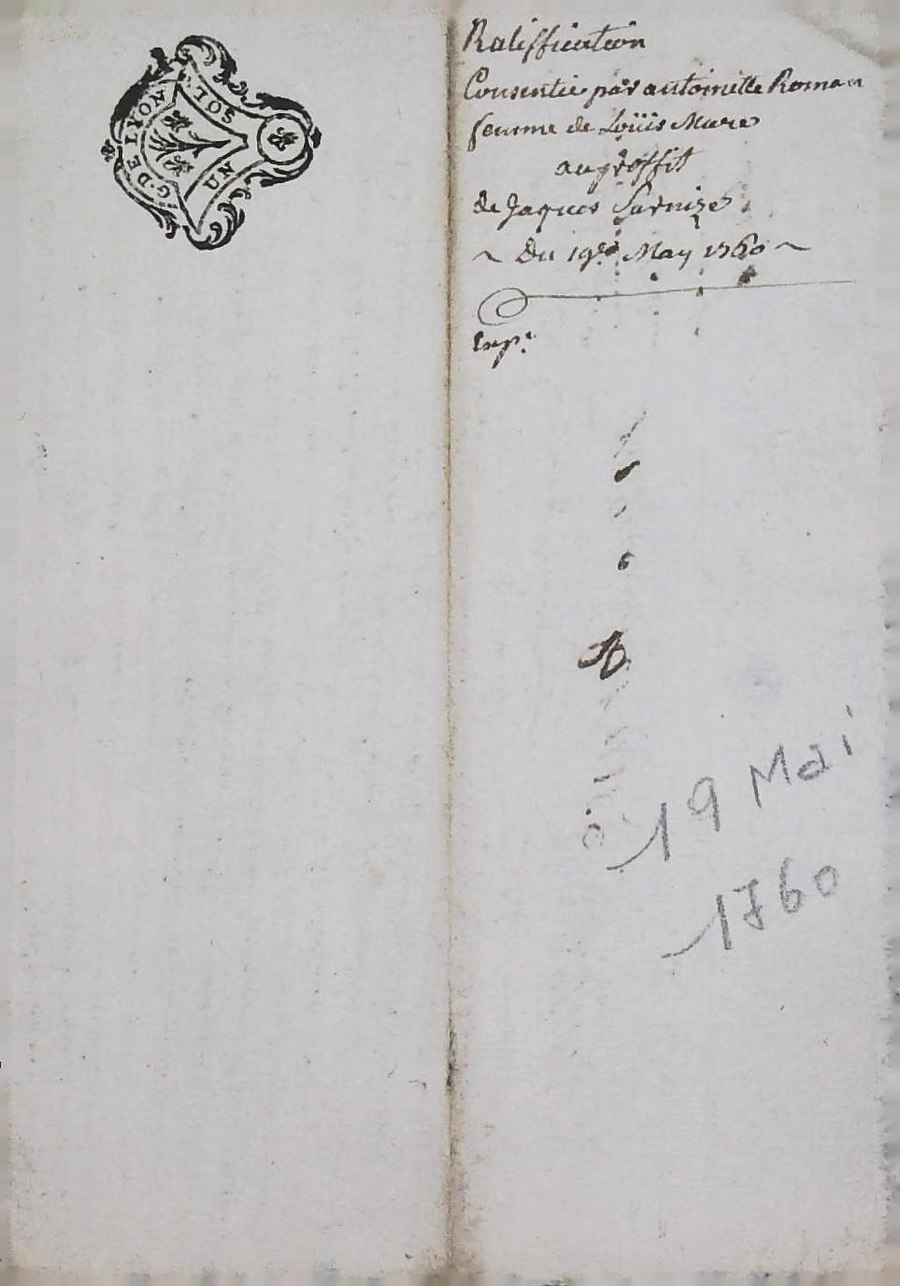 G. DE LYON
UN SOL.
Ratiffication
Consentie par antoinette Roman
femme de Loüis Mure
au proffit
de Jaques
~ Du 19e. May 1760 ~
Exp.e
19 Mai
1760